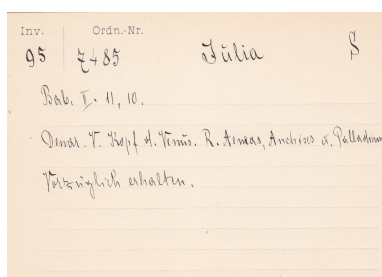 Inv. Ordn.-Nr.
95 7485 Julia S
Bab. II. 11, 10.
Denar. V. Kopf d. Venus. R. Aeneas, Anchises u. Palladium
Vorzüglich erhalten.